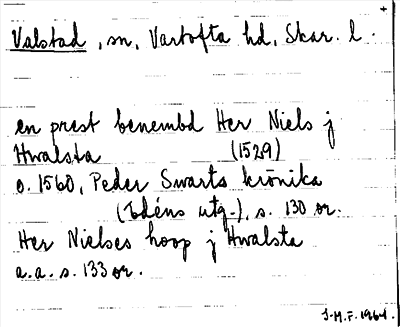 Valstad, sn, Vartofta hd, Skar. l.
en prest benembd Her Niels j
Hwalsta (1529)
o. 1560, Peder Swarts krönika
(Edéns utg.), s. 130 or.
Her Nielses hoop j Hwalsta
a.a. s. 133 or.
J.M.F. 1964.